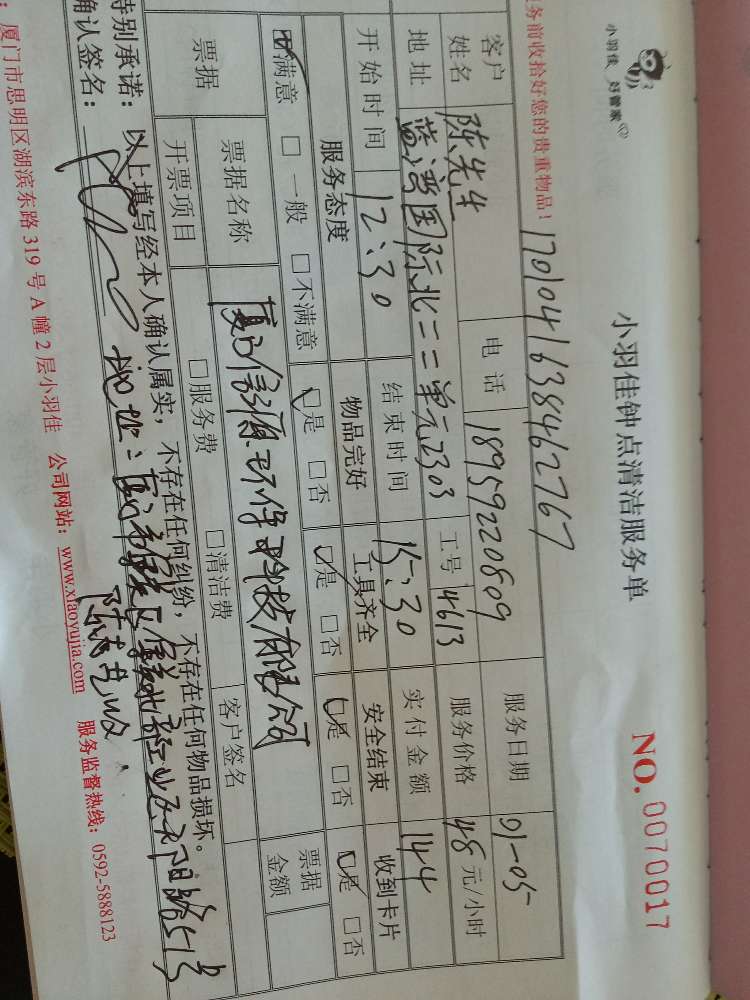 小羽佳 好管家
小羽佳钟点清洁服务单
NO. 0070017
务前收拾好您的贵重物品!
17010416384627​67
客户姓名 陈先生 电话 18959220809 服务日期 01-05
地址 蓝湾国际北二二单元2303 工号 4613 服务价格 48元/小时
开始时间 12:30 结束时间 15:30 实付金额 144
服务态度 物品完好 工具齐全 安全结束 收到卡片
☑满意 □一般 □不满意 ☑是 □否 ☑是 □否 ☑是 □否 ☑是 □否
票据 票据名称 厦门 环保科技有限公司 票据金额
开票项目 □服务费 □清洁费 客户签名
特别承诺:以上填写经本人确认属实,不存在任何纠纷,不存在任何物品损坏。
确认签名:
地址:厦门市
厦门市思明区湖滨东路319号A幢2层小羽佳 公司网站:www.xiaoyujia.com 服务监督热线:0592-5888123